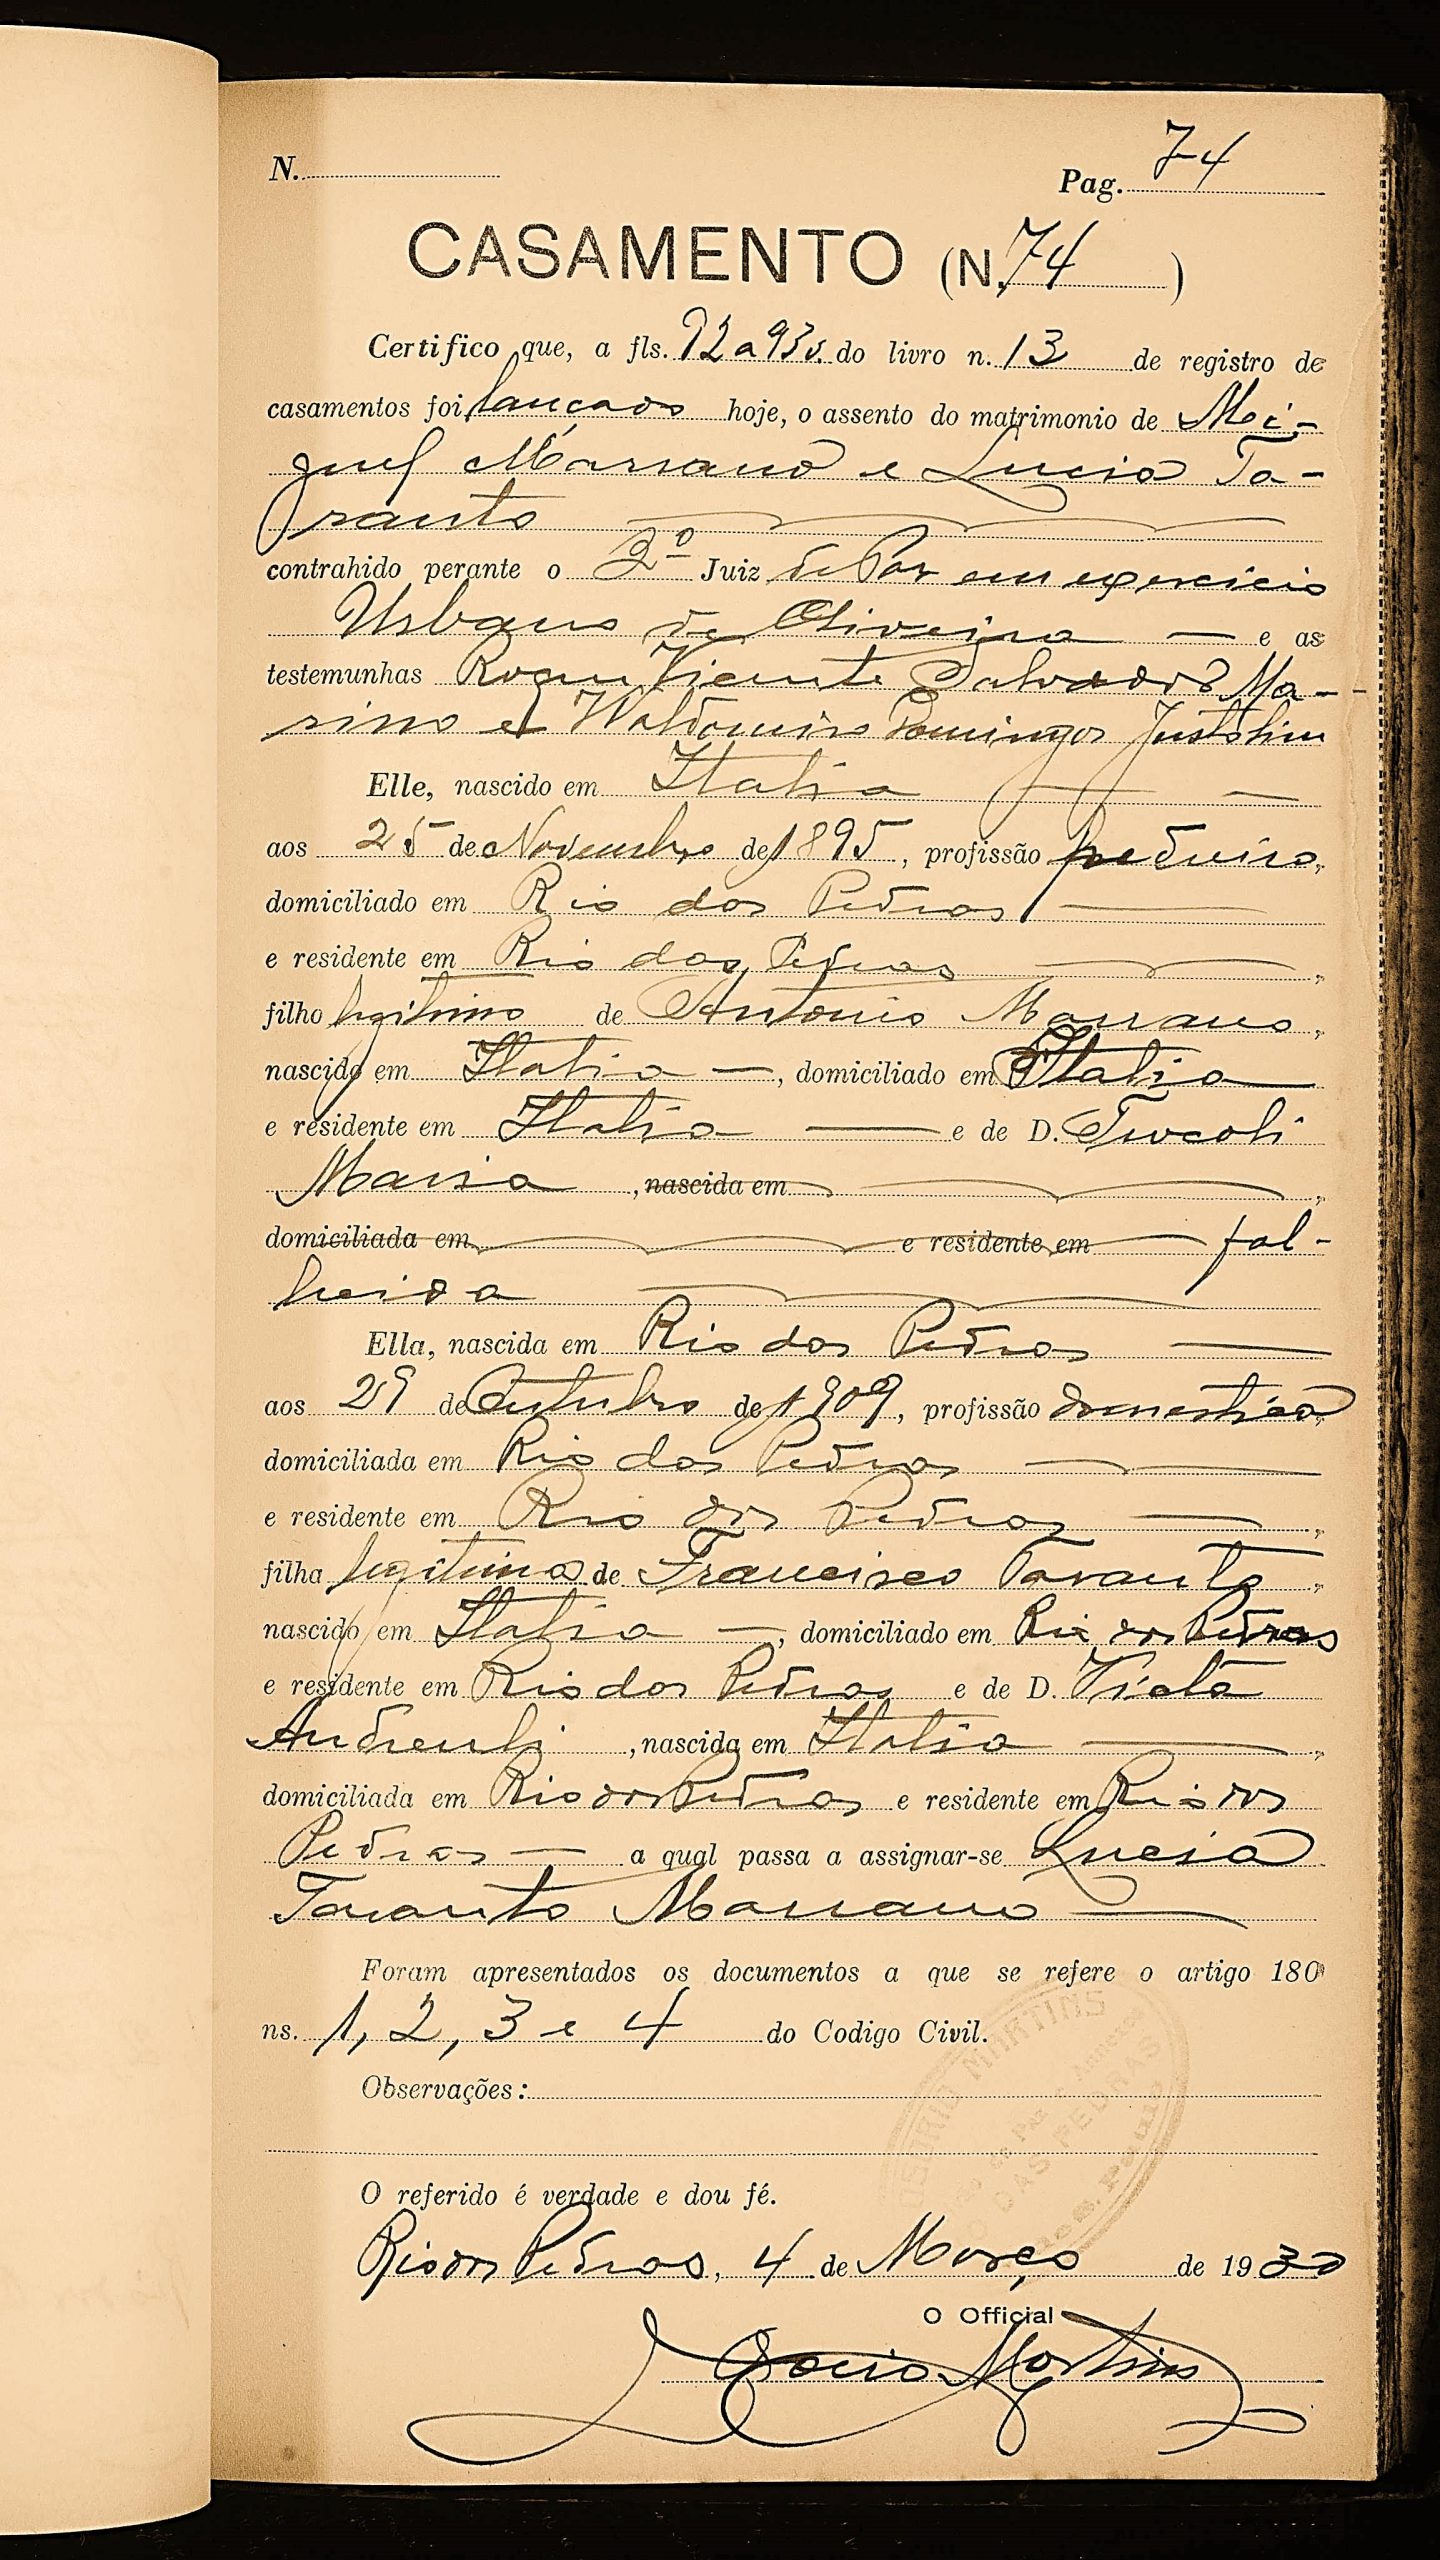 N.
Pag. 74
CASAMENTO (N. 74 )
Certifico que, a fls. 92 a 93v. do livro n. 13 de registro de
casamentos foi lançado hoje, o assento do matrimonio de Mi-
guel Marrano e Lucia Ta-
ranto
contrahido perante o 2º Juiz de Paz em exercicio
Urbano de Oliveira e as
testemunhas Roque Vicente Salvador Ma-
rino e Waldomiro Domingos
Elle, nascido em Italia
aos 25 de Novembro de 1895, profissão pedreiro,
domiciliado em Rio das Pedras
e residente em Rio das Pedras,
filho legitimo de Antonio Marrano,
nascido em Italia, domiciliado em Italia
e residente em Italia e de D.
Maria, nascida em,
domiciliada em e residente em fal-
lecida
Ella, nascida em Rio das Pedras
aos 29 de Outubro de 1909, profissão domestica,
domiciliada em Rio das Pedras
e residente em Rio das Pedras,
filha legitima de Francisco Taranto,
nascido em Italia, domiciliado em Rio das Pedras
e residente em Rio das Pedras e de D.
, nascida em Italia,
domiciliada em Rio das Pedras e residente em Rio das
Pedras a qual passa a assignar-se Lucia
Taranto Marrano
Foram apresentados os documentos a que se refere o artigo 180
ns. 1, 2, 3 e 4 do Codigo Civil.
Observações:
O referido é verdade e dou fé.
Rio das Pedras, 4 de Março de 1930
O Official
Martins